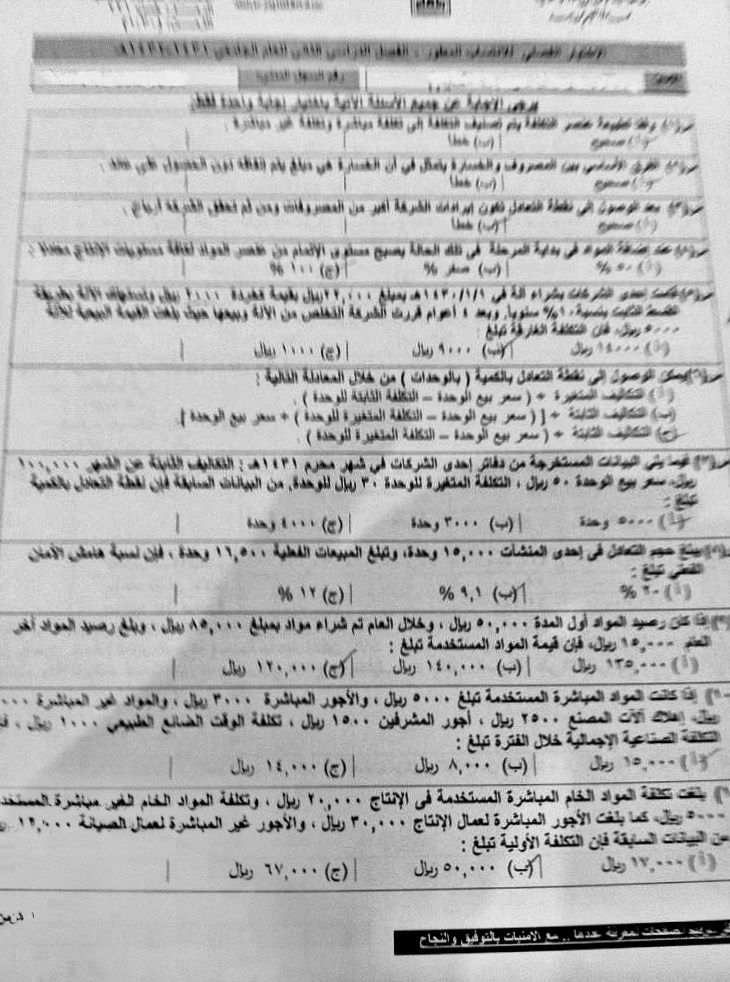 يرجى الإجابة عن جميع الأسئلة الآتية باختيار إجابة واحدة فقط:
عنصر التكلفة يتم تصنيف التكلفة إلى تكلفة مباشرة وتكلفة غير مباشرة .
(أ) صحيح | (ب) خطأ
الفرق الأساسي بين المصروف والخسارة يتمثل في أن الخسارة هي مبلغ يتم إنفاقه دون الحصول على عائد .
(أ) صحيح | (ب) خطأ
بعد الوصول إلى نقطة التعادل تكون إيرادات الشركة أكبر من المصروفات ومن ثم تحقق الشركة أرباح .
(أ) صحيح | (ب) خطأ
عند إضافة المواد في بداية المرحلة في تلك الحالة يصبح مستوى الإتمام من عنصر المواد لكافة مستويات الإنتاج
(أ) ٥٠ % | (ب) صفر % | (ج) ١٠٠ %
قامت إحدى الشركات بشراء آلة في ١/١/١٤٣٠هـ بمبلغ ٢٢,٠٠٠ ريال بقيمة كخردة ٢٠٠٠ ريال وتستهلك الآلة بطريقة
القسط الثابت بنسبة ١٠% سنوياً, وبعد ٤ أعوام قررت الشركة التخلص من الآلة وبيعها حيث بلغت القيمة البيعية للآلة
٥٠٠٠ ريال، فإن التكلفة الغارقة تبلغ :
(أ) ١٤٠٠٠ ريال | (ب) ٩٠٠٠ ريال | (ج) ١٠٠٠ ريال |
يمكن الوصول إلى نقطة التعادل بالكمية ( بالوحدات ) من خلال المعادلة التالية :
(أ) التكاليف المتغيرة ÷ ( سعر بيع الوحدة – التكلفة الثابتة للوحدة ) .
(ب) التكاليف الثابتة ÷ [ ( سعر بيع الوحدة – التكلفة المتغيرة للوحدة ) ÷ سعر بيع الوحدة ].
(ج) التكاليف الثابتة ÷ ( سعر بيع الوحدة – التكلفة المتغيرة للوحدة ) .
فيما يلي البيانات المستخرجة من دفاتر إحدى الشركات في شهر محرم ١٤٣١هـ : التكاليف الثابتة عن الشهر ١٠٠,٠٠٠
ريال، سعر بيع الوحدة ٥٠ ريال ، التكلفة المتغيرة للوحدة ٣٠ ريال للوحدة, من البيانات السابقة فإن نقطة التعادل بالكمية
تبلغ :
(أ) ٥٠٠٠ وحدة | (ب) ٣٠٠٠ وحدة | (ج) ٤٠٠٠ وحدة |
يبلغ حجم التعادل في إحدى المنشآت ١٥,٠٠٠ وحدة, وتبلغ المبيعات الفعلية ١٦,٥٠٠ وحدة ، فإن نسبة هامش الأمان
الفعلي تبلغ :
(أ) ٢٠ % | (ب) ٩,١ % | (ج) ١٢ % |
إذا كان رصيد المواد أول المدة ٥٠,٠٠٠ ريال ، وخلال العام تم شراء مواد بمبلغ ٨٥,٠٠٠ ريال ، وبلغ رصيد المواد آخر
العام ١٥,٠٠٠ ريال، فإن قيمة المواد المستخدمة تبلغ :
(أ) ١٣٥,٠٠٠ ريال | (ب) ١٤٠,٠٠٠ ريال | (ج) ١٢٠,٠٠٠ ريال |
إذا كانت المواد المباشرة المستخدمة تبلغ ٥٠٠٠ ريال ، والأجور المباشرة ٣٠٠٠ ريال ، والمواد غير المباشرة
ريال، إهلاك آلات المصنع ٢٥٠٠ ريال ، أجور المشرفين ١٥٠٠ ريال ، تكلفة الوقت الضائع الطبيعي ١٠٠٠ ريال ،
التكلفة الصناعية الإجمالية خلال الفترة تبلغ :
(أ) ١٥,٠٠٠ ريال | (ب) ٨,٠٠٠ ريال | (ج) ١٤,٠٠٠ ريال |
بلغت تكلفة المواد الخام المباشرة المستخدمة في الإنتاج ٢٠,٠٠٠ ريال ، وتكلفة المواد الخام الغير مباشرة
٥٠٠٠ ريال، كما بلغت الأجور المباشرة لعمال الإنتاج ٣٠,٠٠٠ ريال ، والأجور غير المباشرة لعمال الصيانة ١٢,٠٠٠
من البيانات السابقة فإن التكلفة الأولية تبلغ :
(أ) ١٧,٠٠٠ ريال | (ب) ٥٠,٠٠٠ ريال | (ج) ٦٧,٠٠٠ ريال |
.. مع الأمنيات بالتوفيق والنجاح